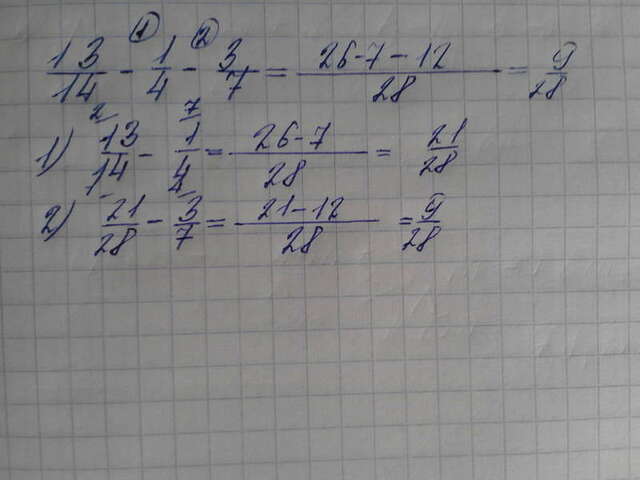 ① ②
13/14 - 1/4 - 3/7 = 26-7-12/28 = 9/28
2 7
1) 13/14 - 1/4 = 26-7/28 = 21/28
2) 21/28 - 3/7 = 21-12/28 = 9/28